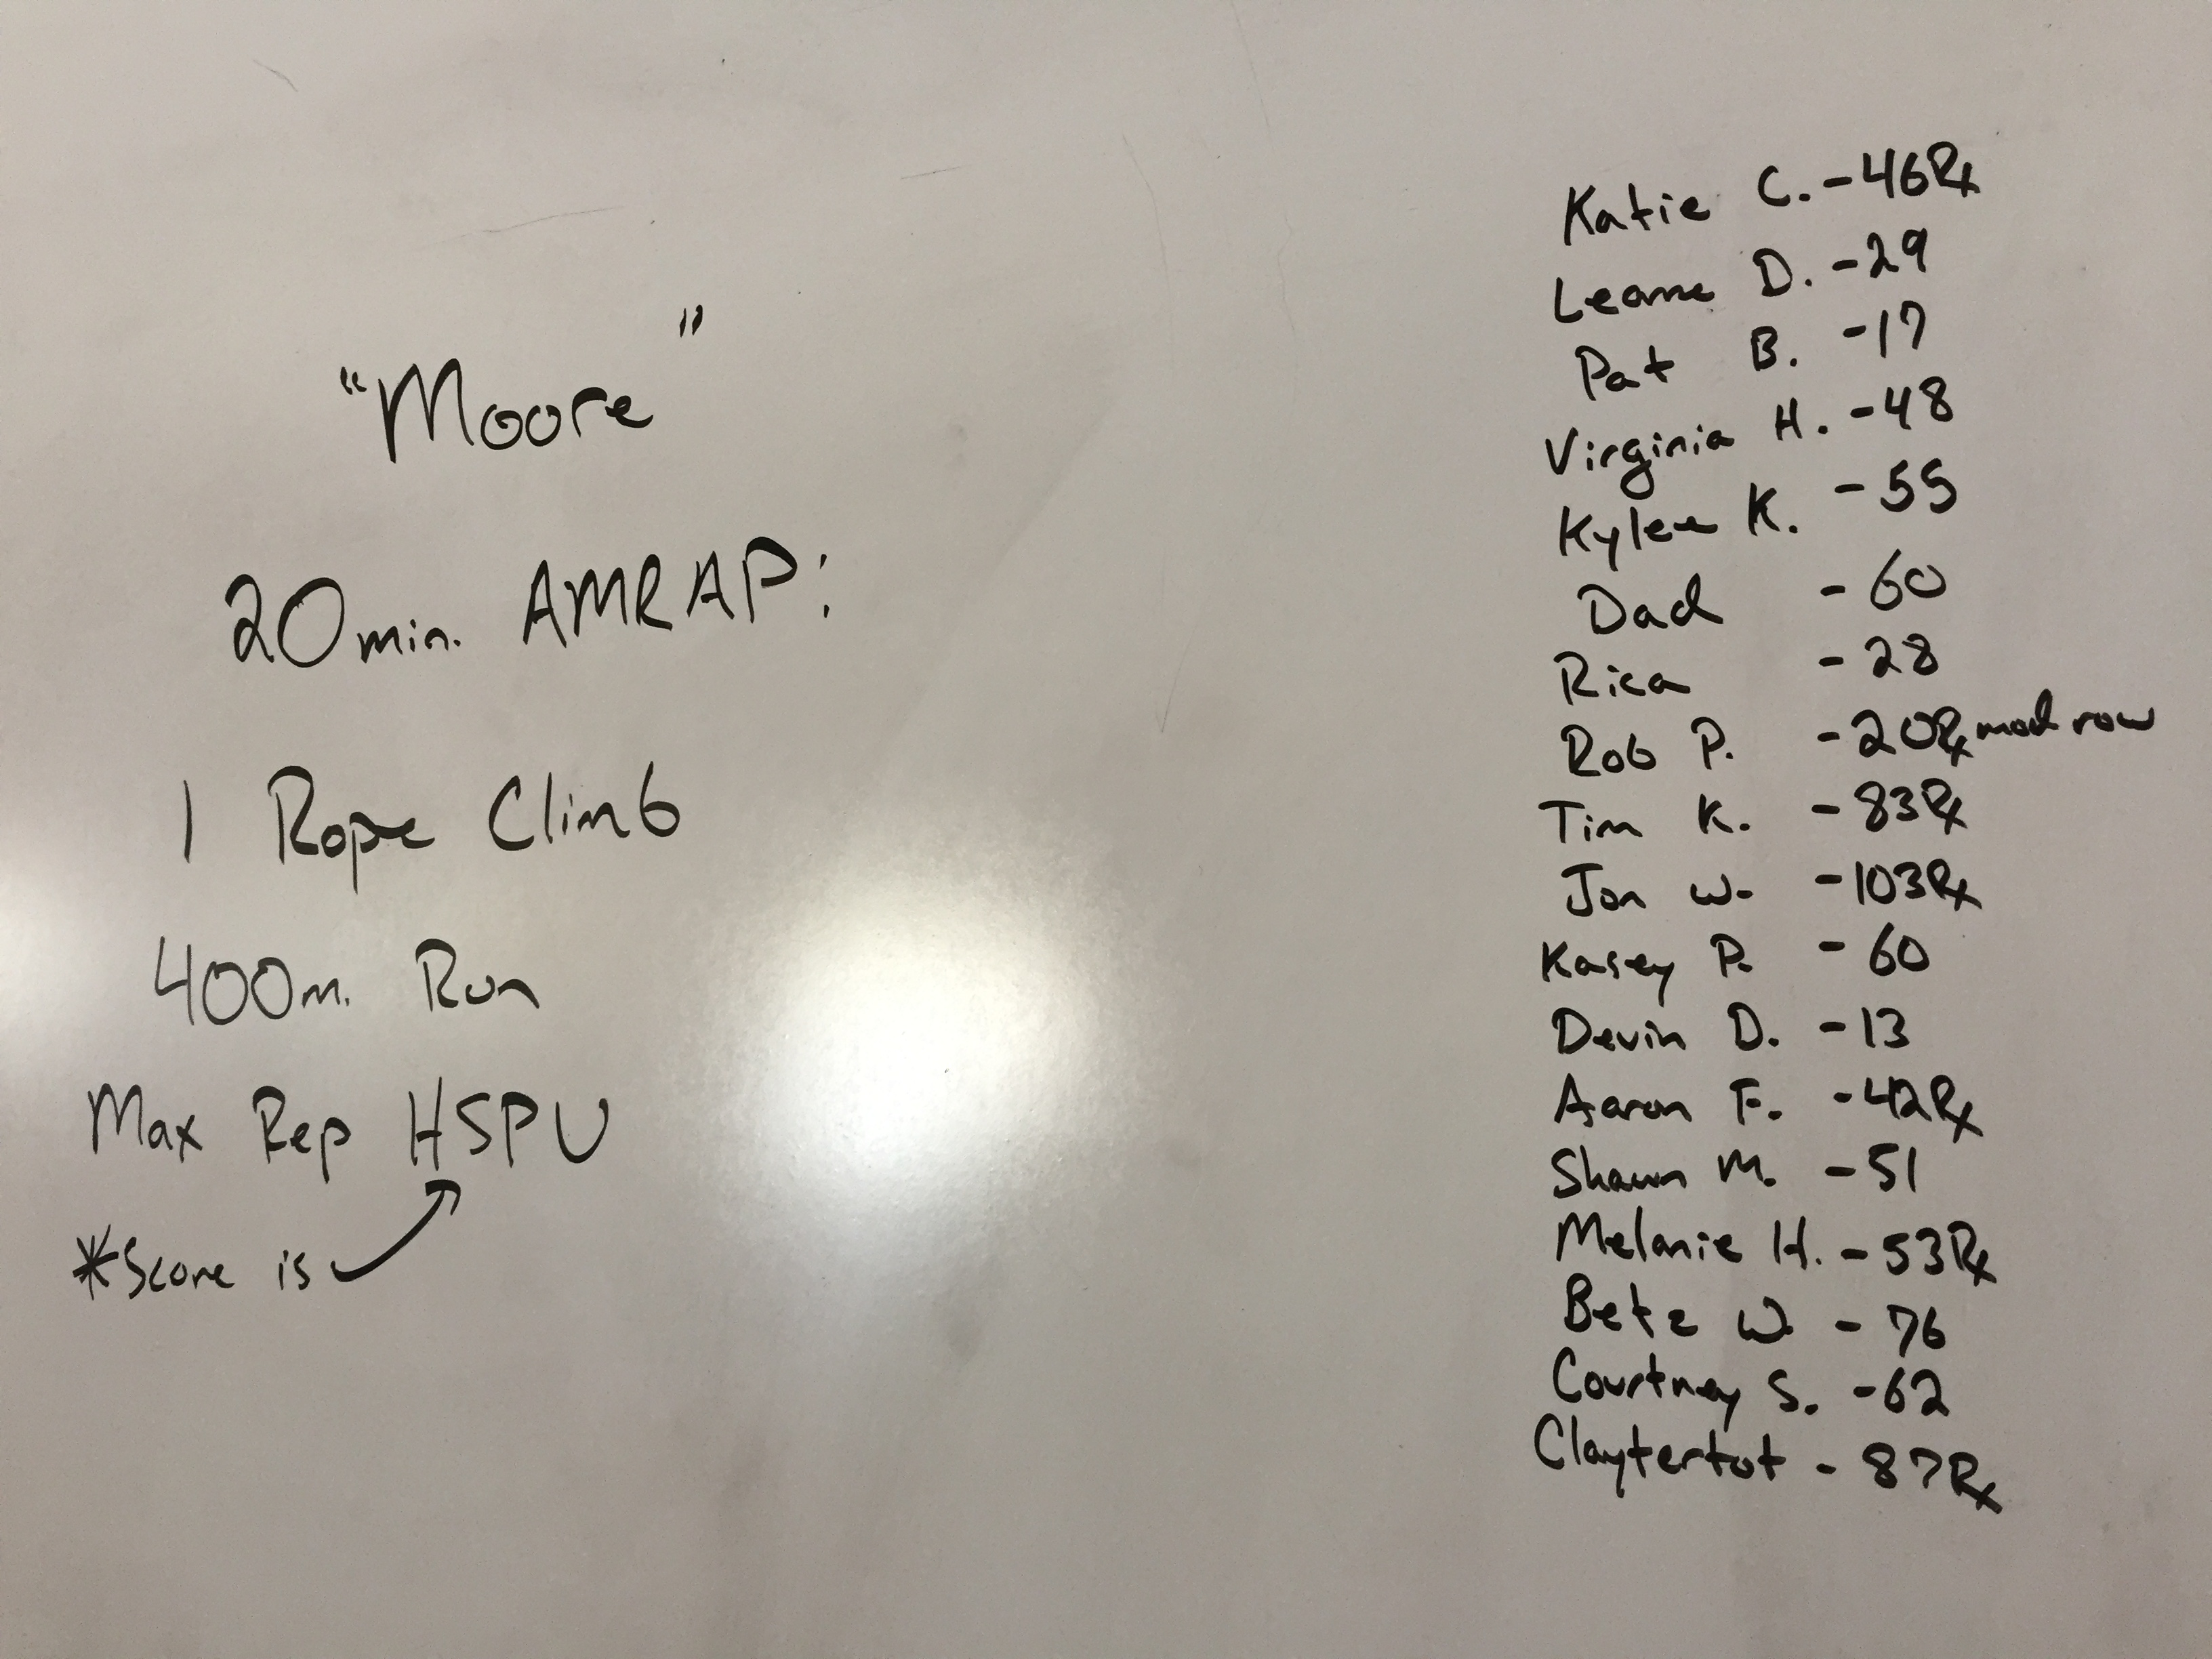 "Moore"
20min. AMRAP:
1 Rope Climb
400m. Run
Max Rep HSPU
*Score is
Katie C. - 46Rx
Leanne D. - 29
Pat B. - 17
Virginia H. - 48
Kylee K. - 55
Dad - 60
Rica - 28
Rob P. - 20Rx mod row
Tim K. - 83Rx
Jon W. - 103Rx
Kasey P. - 60
Devin D. - 13
Aaron F. - 42Rx
Shawn M. - 51
Melanie H. - 53Rx
Betz W. - 76
Courtney S. - 62
Claytertot - 87Rx